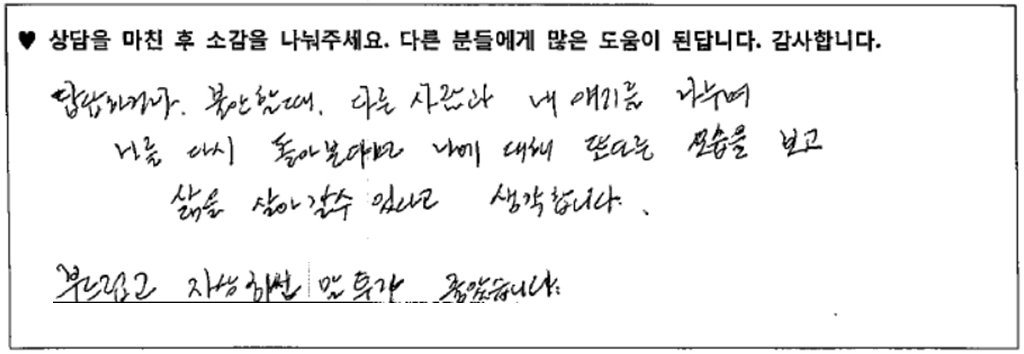 ♥ 상담을 마친 후 소감을 나눠주세요. 다른 분들에게 많은 도움이 된답니다. 감사합니다.
답답하거나. 불안할때. 다른 사람과 내 얘기를 나누며
나를 다시 돌아본다면 나에 대해 또다른 모습을 보고
삶을 살아갈수 있다고 생각합니다.
부드럽고 자상하신 말투가 좋았습니다.